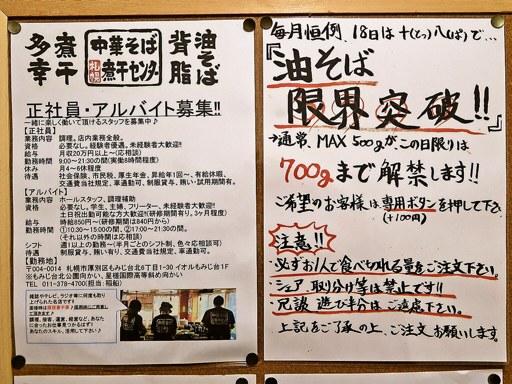 多幸
煮干
中華そば
札幌
煮干センター
背脂
油そば
正社員・アルバイト募集!!
一緒に楽しく働いて頂けるスタッフを募集中♪
【正社員】
業務内容 調理。店内業務全般。
資格 必要なし。経験者優遇。未経験者大歓迎!!
給与 月収20万円以上～(応相談)
勤務時間 9:00～21:30の間(実働8時間程度)
休み 月4～6休程度
待遇 社会保険、市民税、厚生年金、昇給年1回～、有給休暇、
交通費当社規定、車通勤可、制服貸与、賄い・試用期間有。
【アルバイト】
業務内容 ホールスタッフ、調理補助
資格 必要なし。学生、主婦、フリーター、未経験者大歓迎!!
土日祝出勤可能な方大歓迎!!(研修期間有り、3ヶ月程度)
給与 時給850円～(研修期間は840円から)
勤務時間 ①10:30～15:00の間、②17:00～21:30の間。
(それ以外の時間は応相談)
シフト 週1以上の勤務～(半月ごとのシフト制、色々応相談可)
待遇 制服貸与、賄い有り、交通費当社規定、車通勤可。
【勤務地】
〒004-0014 札幌市厚別区もみじ台北6丁目1-30 イオルもみじ台1F
※もみじ台北公園向かい、星槎国際高等斜め向かい
TEL 011-378-4700(担当:稲船)
雑誌やテレビ、ラジオ等に何度も取り
上げられた名店です!
調理、接客、運営、経営など、あなた
に合ったお仕事見つかるはず!
あなたのスキル、活用して下さい♪
毎月恒例、18日は十(とっ)八(ぱ)で…
『油そば
限界突破!!』
→通常、MAX 500gがこの日限りは
700gまで解禁します!!
ご希望のお客様は専用ボタンを押して下さい
(+100円)
注意!!
・必ずお1人で食べ切れる量をご注文下さい。
・シェア、取り分け等は禁止です!!
・冗談、遊び半分はご遠慮下さい。
上記をご了承の上、ご注文お願いします。